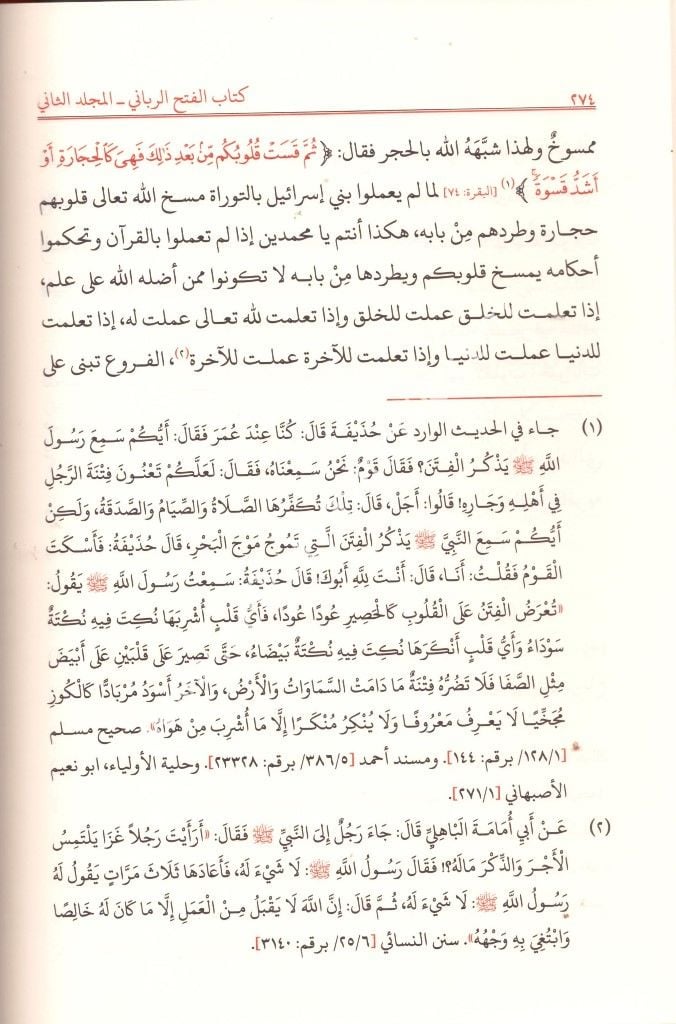 ٢٧٤
كتاب الفتح الرباني - المجلد الثاني
ممسوخٌ ولهذا شبَّهَهُ الله بالحجر فقال: ﴿ ثُمَّ قَسَتْ قُلُوبُكُم مِّنۢ بَعْدِ ذَٰلِكَ فَهِىَ كَٱلْحِجَارَةِ أَوْ
أَشَدُّ قَسْوَةً ﴾(١) [البقرة: ٧٤] لما لم يعملوا بني إسرائيل بالتوراة مسخ الله تعالى قلوبهم
حجارة وطردهم مِنْ بابه، هكذا أنتم يا محمدين إذا لم تعملوا بالقرآن وتحكموا
أحكامه يمسخ قلوبكم ويطردها مِنْ بابه لا تكونوا ممن أضله الله على علم،
إذا تعلمت للخلق عملت للخلق وإذا تعلمت لله تعالى عملت له، إذا تعلمت
للدنيا عملت للدنيا وإذا تعلمت للآخرة عملت للآخرة(٢)، الفروع تبنى على
(١) جاء في الحديث الوارد عَنْ حُذَيْفَةَ قَالَ: كُنَّا عِنْدَ عُمَرَ فَقَالَ: أَيُّكُمْ سَمِعَ رَسُولَ
اللَّهِ ﷺ يَذْكُرُ الْفِتَنَ؟ فَقَالَ قَوْمٌ: نَحْنُ سَمِعْنَاهُ، فَقَالَ: لَعَلَّكُمْ تَعْنُونَ فِتْنَةَ الرَّجُلِ
فِي أَهْلِهِ وَجَارِهِ! قَالُوا: أَجَلْ، قَالَ: تِلْكَ تُكَفِّرُهَا الصَّلَاةُ وَالصِّيَامُ وَالصَّدَقَةُ، وَلَكِنْ
أَيُّكُمْ سَمِعَ النَّبِيَّ ﷺ يَذْكُرُ الْفِتَنَ الَّتِي تَمُوجُ مَوْجَ الْبَحْرِ، قَالَ حُذَيْفَةُ: فَأَسْكَتَ
الْقَوْمُ فَقُلْتُ: أَنَا، قَالَ: أَنْتَ لِلَّهِ أَبُوكَ! قَالَ حُذَيْفَةُ: سَمِعْتُ رَسُولَ اللَّهِ ﷺ يَقُولُ:
«تُعْرَضُ الْفِتَنُ عَلَى الْقُلُوبِ كَالْحَصِيرِ عُودًا عُودًا، فَأَيُّ قَلْبٍ أُشْرِبَهَا نُكِتَ فِيهِ نُكْتَةٌ
سَوْدَاءُ وَأَيُّ قَلْبٍ أَنْكَرَهَا نُكِتَ فِيهِ نُكْتَةٌ بَيْضَاءُ، حَتَّى تَصِيرَ عَلَى قَلْبَيْنِ عَلَى أَبْيَضَ
مِثْلِ الصَّفَا فَلَا تَضُرُّهُ فِتْنَةٌ مَا دَامَتْ السَّمَاوَاتُ وَالْأَرْضُ، وَالْآخَرُ أَسْوَدُ مُرْبَادًّا كَالْكُوزِ
مُجَخِّيًا لَا يَعْرِفُ مَعْرُوفًا وَلَا يُنْكِرُ مُنْكَرًا إِلَّا مَا أُشْرِبَ مِنْ هَوَاهُ». صحيح مسلم
[١٢٨/١/ برقم: ١٤٤]. ومسند أحمد [٣٨٦/٥/ برقم: ٢٣٣٢٨]. وحلية الأولياء، ابو نعيم
الأصبهاني [٢٧١/١].
(٢) عَنْ أَبِي أُمَامَةَ الْبَاهِلِيِّ قَالَ: جَاءَ رَجُلٌ إِلَى النَّبِيِّ ﷺ فَقَالَ: «أَرَأَيْتَ رَجُلًا غَزَا يَلْتَمِسُ
الْأَجْرَ وَالذِّكْرَ مَالَهُ؟! فَقَالَ رَسُولُ اللَّهِ ﷺ: لَا شَيْءَ لَهُ، فَأَعَادَهَا ثَلَاثَ مَرَّاتٍ يَقُولُ لَهُ
رَسُولُ اللَّهِ ﷺ: لَا شَيْءَ لَهُ، ثُمَّ قَالَ: إِنَّ اللَّهَ لَا يَقْبَلُ مِنْ الْعَمَلِ إِلَّا مَا كَانَ لَهُ خَالِصًا
وَابْتُغِيَ بِهِ وَجْهُهُ». سنن النسائي [٢٥/٦/ برقم: ٣١٤٠].